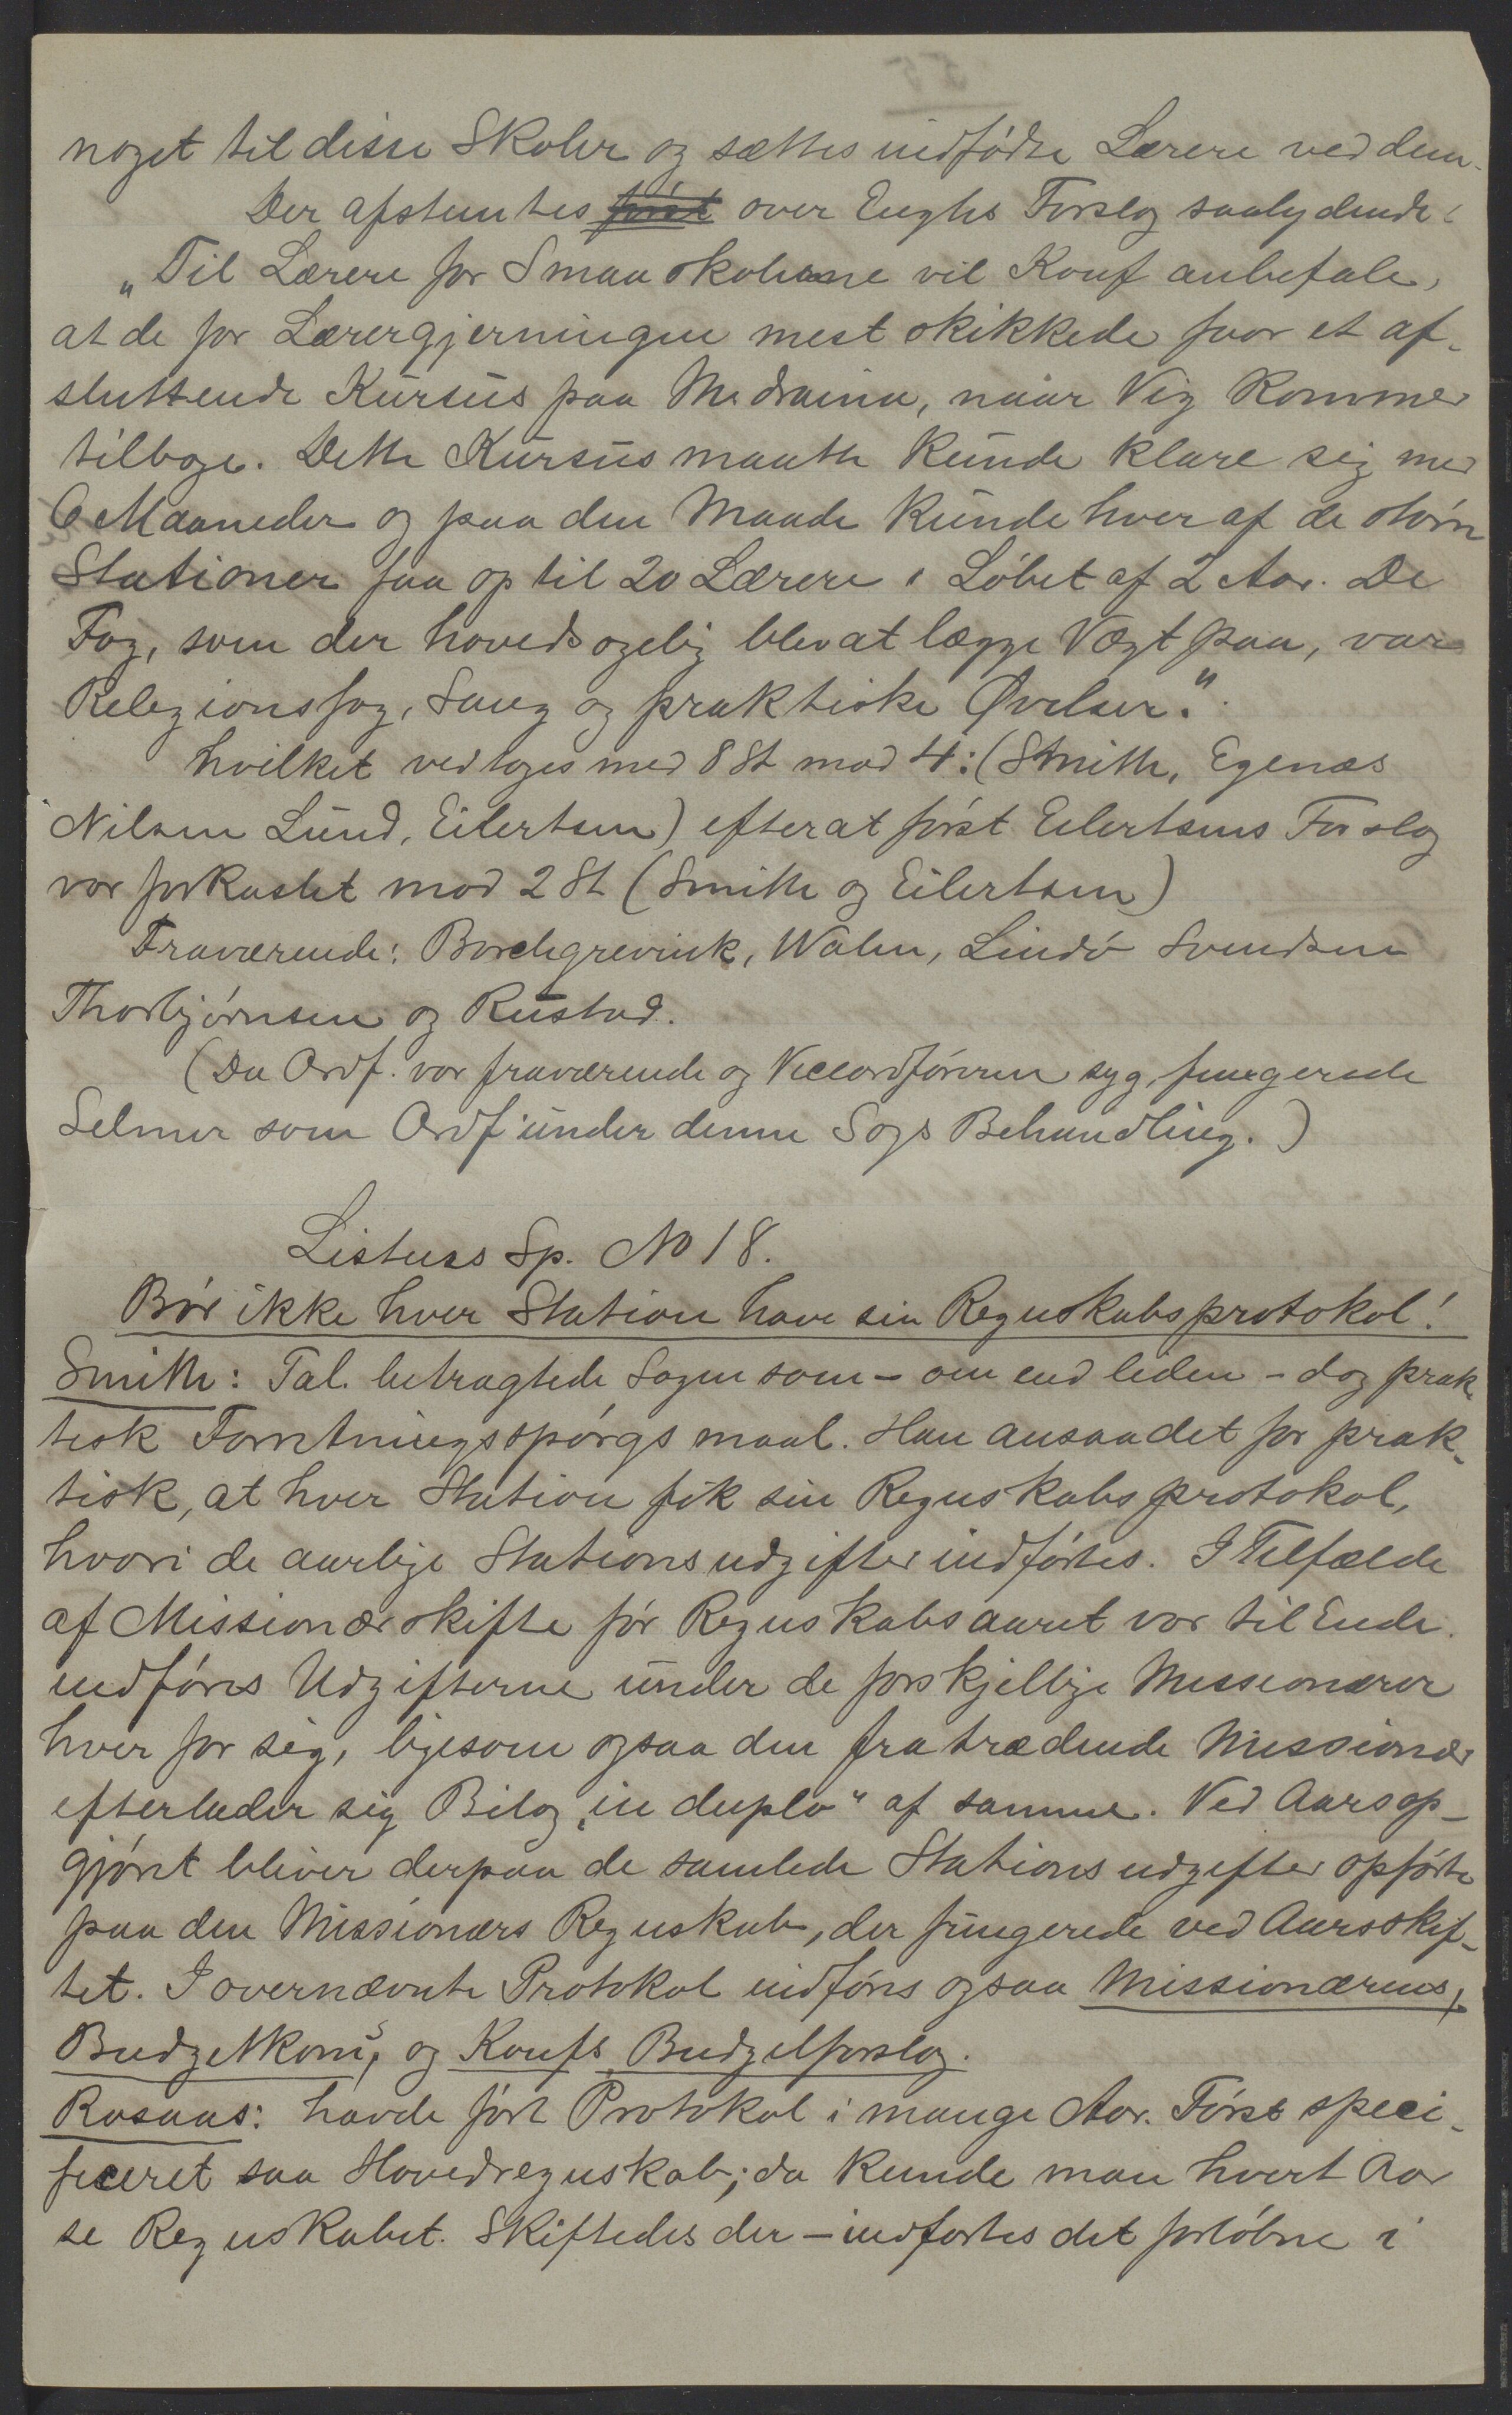 noget til disse Skoler og sættes indfødte Lærere ved dem.
Der afstemtes først over Enghs Forslag saalydende:
„Til Lærere for Smaaskolerne vil Konf anbefale,
at de for Lærergjerningen mest skikkede faar et af-
sluttende Kursus paa Masinandraina, naar Vig kommer
tilbage. Dette Kursus maatte kunde klare sig med
6 Maaneder og paa den Maade kunde hver af de større
Stationer faa op til 20 Lærere i Løbet af 2 Aar. De
Fag, som der hovedsagelig blev at lægge Vægt paa, var
Religionsfag, Sang og praktiske Øvelser."
hvilket vedtoges med 8 St mod 4: (Smith, Egenæs
Nilsen Lund, Eilertsen) efterat først Eilertsens Forslag
var forkastet mod 2 St (Smith og Eilertsen)
Fraværende: Borchgrevink, Walen, Lindø Svendsen
Thorbjørnsen og Rustad.
(Da Ordf. var fraværende og Viceordføreren syg, fungerede
Selmer som Ordf under denne Sags Behandling.)
Listens Sp. No 18.
Bør ikke hver Station have sin Regnskabsprotokol!
Smith: Tal. betragtede Sagen som - om end liden - dog prak-
tisk Forretningsspørgsmaal. Han ansaa det for prak-
tisk, at hver Station fik sin Regnskabsprotokol,
hvori de aarlige Stationsudgifter indførtes. I Tilfælde
af Missionærskifte før Regnskabsaaret var til Ende.
indføres Udgifterne under de forskjellige Missionærer
hver for sig, ligesom ogsaa den fratrædende Missionær
efterlader sig Bilag „in duplo" af samme. Ved Aarsop-
gjøret bliver derpaa de samlede Stationsudgifter opførte
paa den Missionærs Regnskab, der fungerede ved Aarsskif-
tet. I overnævnte Protokol indføres ogsaa Missionærens,
Budgetkoms, og Konfs Budgetforslag.
Rosaas: havde ført Protokol i mange Aar. Først speci-
ficeret saa Hovedregnskab; da kunde man hvert Aar
se Regnskabet. Skiftedes der - indførtes det forløbne i